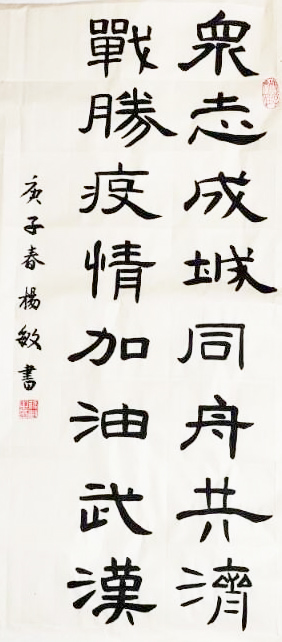 眾志成城同舟共濟
戰勝疫情加油武漢
庚子春楊敏書